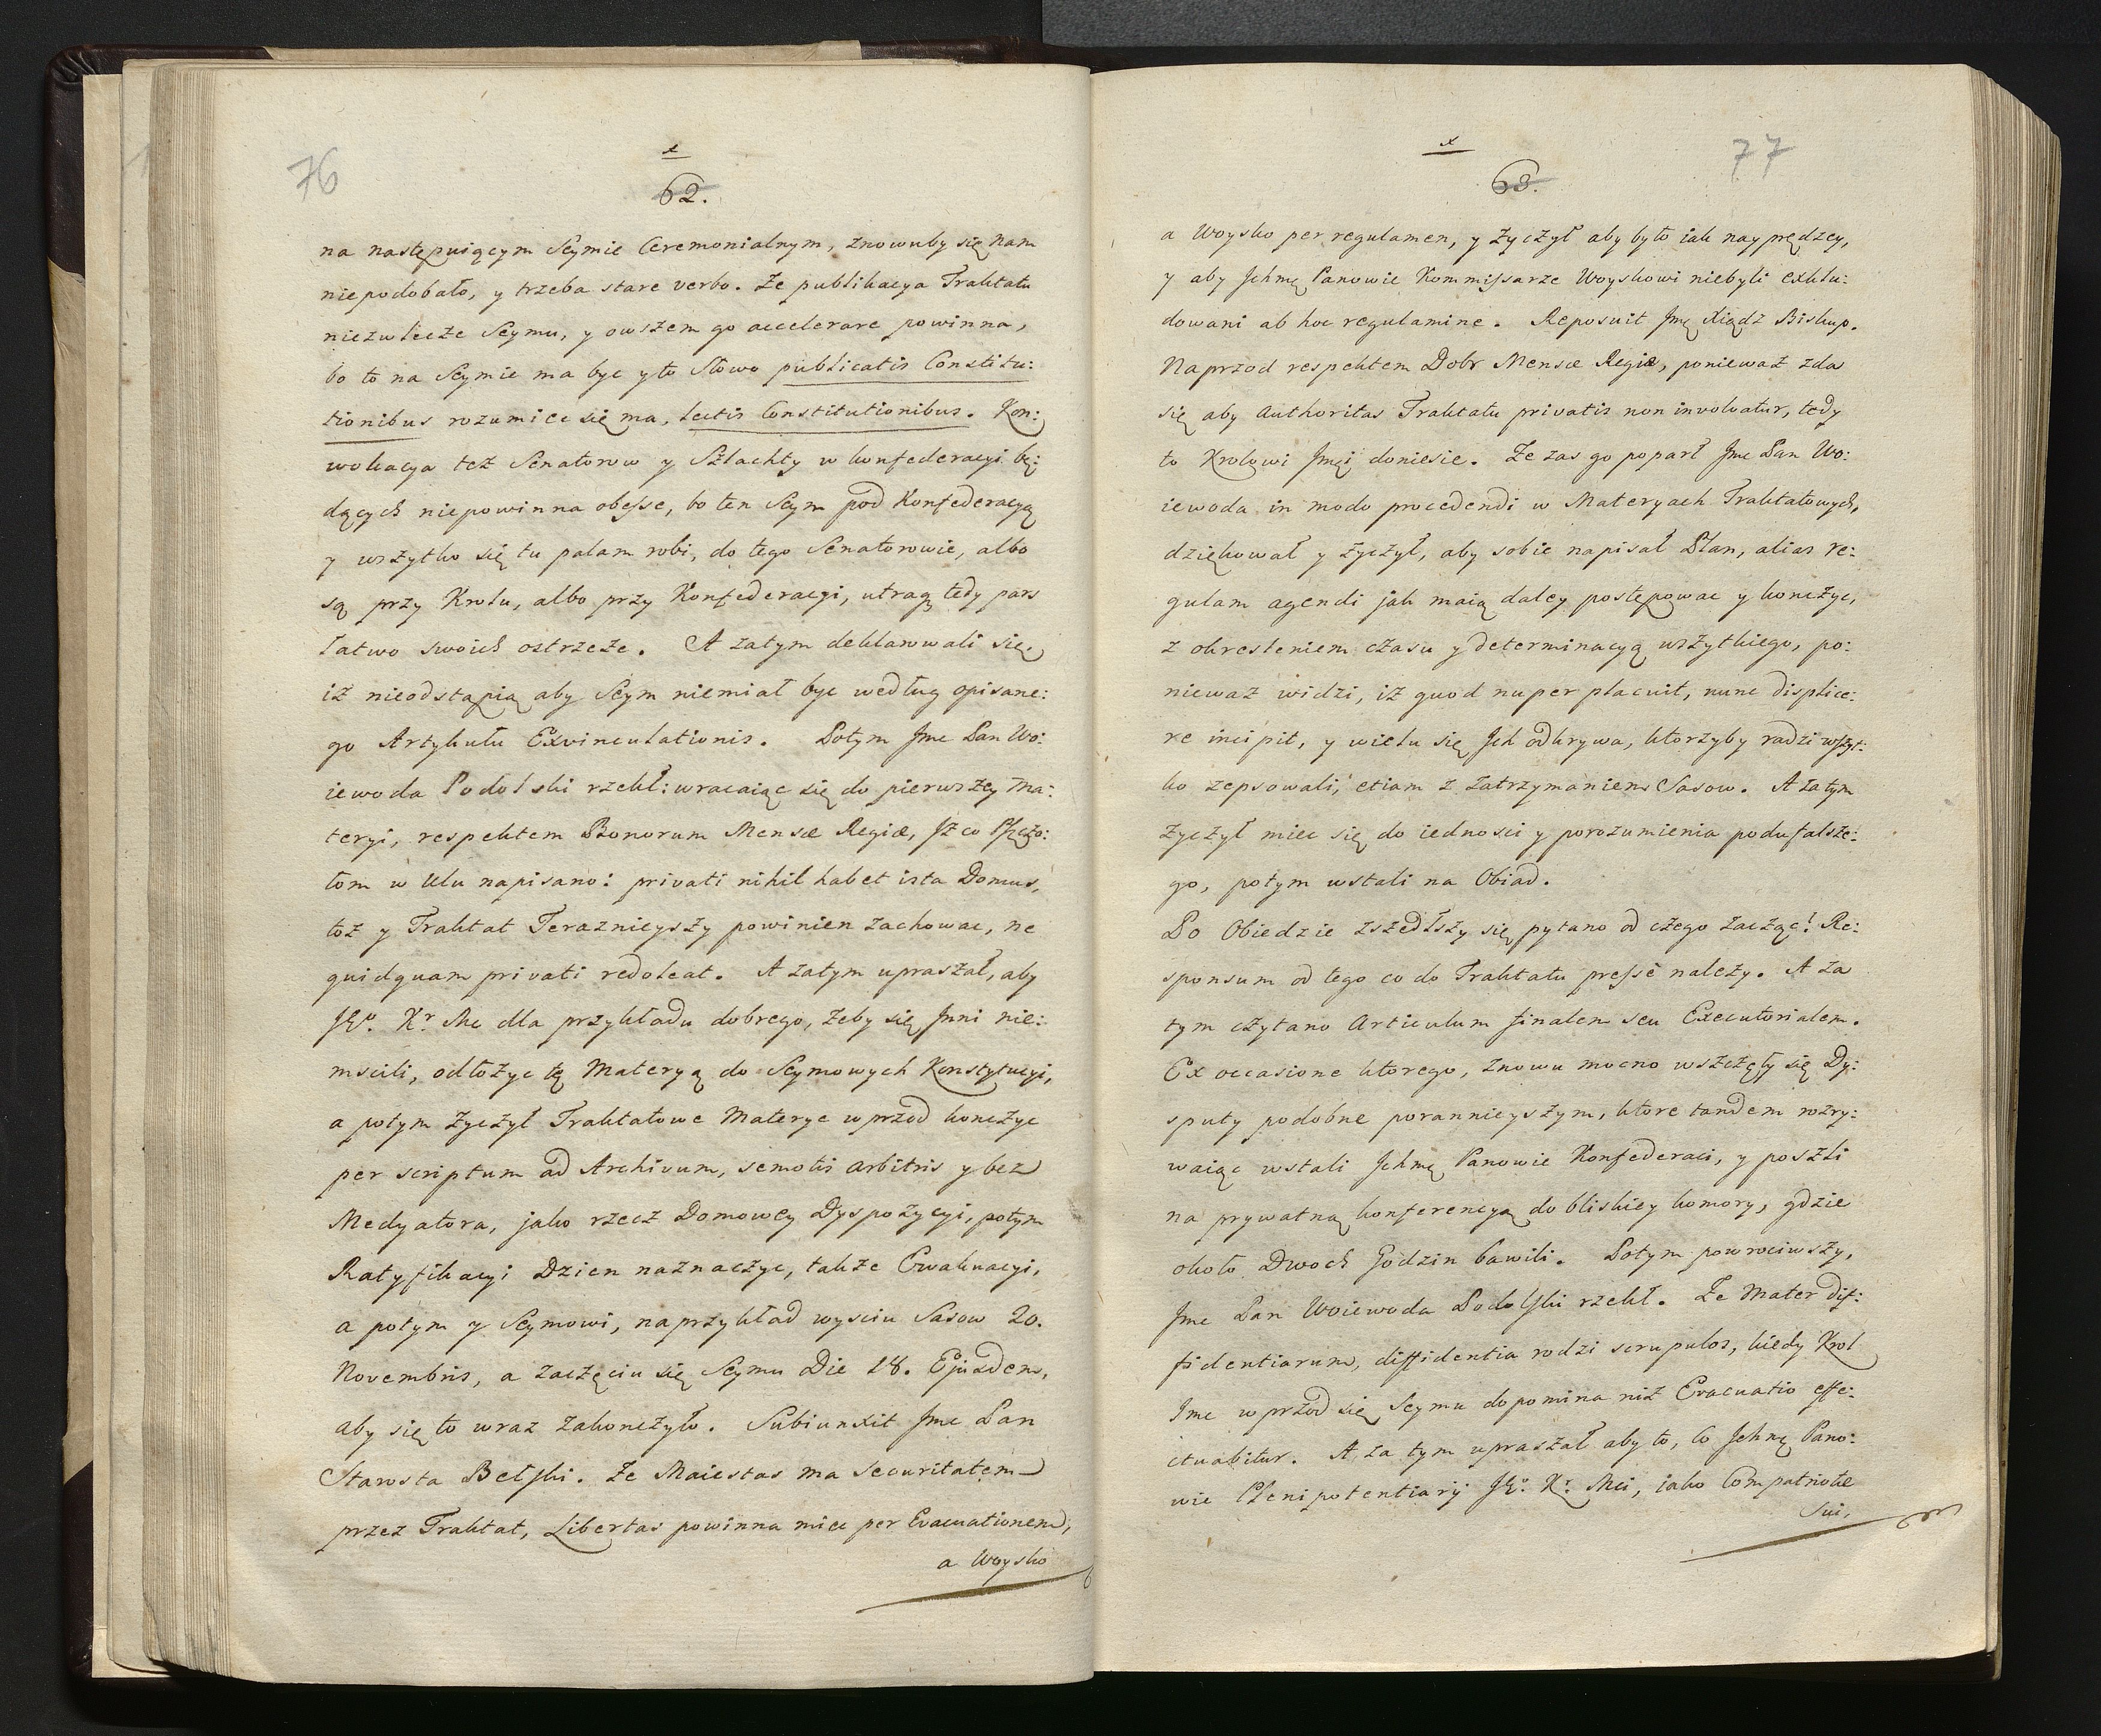 76
x
62.
na następuiącym Seymie Ceremonialnym, znowuby się nam
niepodobało, y trzeba stare verbo. Ze publikacya Traktatu
niezwlecze Seymu, y owszem go accelerare powinna,
bo to na Seymie ma byc y to Słowo publicatis Constitu:
tionibus rozumiec się ma, lectis Constitutionibus. Kon:
wokacya tez Senatorow y Szlachty w konfederacyi bę:
dących niepowinna obesse, bo ten Seym pod Konfederacyą
y wszytko się tu palam robi, do tego Senatorowie, albo
są przy Krolu, albo przy Konfederacyi, utraq tedy pars
łatwo swoich ostrzeże. A zatym deklarowali się,
iz nieodstąpią aby Seym niemiał byc według opisane:
go Artykułu Exvinculationis. Potym Jmc Pan Wo:
iewoda Podolski rzekł: wracaiąc się do pierwszey Ma:
teryi, respektem Bonorum Mensæ Regiæ, Jż co Pszczo:
łom w Ulu napisano: privati nihil habet ista Domus,
toż y Traktat Teraznieyszy powinien zachowac, ne
quidquam privati redoleat. A zatym upraszał, aby
JEo. Kr Mc dla przykładu dobrego, żeby się Jnni nie:
mscili, odłożyc tę Materyą do Seymowych Konstytucyi,
a potym życzył Traktatowe Materye wprzod konczyc
per scriptum ad Archivum, semotis arbitris y bez
Medyatora, jako rzecz Domowey Dyspozycyi, potym
Ratyfikacyi Dzien naznaczyc, także Ewakuacyi,
a potym y Seymowi, naprzykład wysciu Sasow 20.
Novembris, a zaczęciu się Seymu Die 28. Ejusdem,
aby się to wraz zakonczyło. Subiunxit Jmc Pan
Starosta Bełski. Ze Maiestas ma securitatem
przez Traktat, Libertas powinna miec per Evacuationem,
a Woysko
x
63.
77
a Woysko per regulamen, y życzył aby było iak nayprędzey,
y aby Jchmę Panowie Kommissarze Woyskowi niebyli exklu:
dowani ab hoc regulamine. Reposuit Jmę Xiądz Biskup.
Naprzod respektem Dobr Mensæ Regiæ, ponieważ zda
się aby Authoritas Traktatu privatis non involvatur, tedy
to Krolowi Jmęi doniesie. Ze zas go poparł Jmc Pan Wo:
iewoda in modo procedendi w Materyach Traktatowych,
dziękował y życzył, aby sobie napisał Plan, alias re:
gulam agendi jak maią daley postępowac y konczyc,
z okresleniem czasu y determinacyą wszytkiego, po:
niewaz widzi, iz quod nuper placuit, nunc displice:
re incipit, y wielu się Jch odkrywa, ktorzyby radzi wszyt:
ko zepsowali, etiam z zatrzymaniem Sasow. A zatym
życzył miec się do iednosci y porozumienia podufalsze:
go, potym wstali na Obiad.
Po Obiedzie zszedłszy się pytano od czego zacząc! Re:
sponsum od tego co do Traktatu presse należy. A za
tym czytano Articulum finalem seu Executorialem.
Ex occasione ktorego, znowu mocno wszczęły się Dy:
sputy podobne porannieyszym, ktore tandem rozry:
waiąc wstali Jchmę Panowie Konfederaci, y poszli
na prywatną konferencyą do bliskiey komory, gdzie
około Dwoch Godzin bawili. Potym powrociwszy,
Jmc Pan Woiewoda Podolski rzekł. Ze Mater dif:
fidentiarum, diffidentia rodzi scrupulos, kiedy Krol
Jmc wprzod się Seymu dopomina niż Evacuatio effe:
ctuabitur. A za tym upraszał aby to, to Jchmę Pano:
wie Plenipotentiarij JEo. Kr. Mci, iako Compatriotæ
Sui,